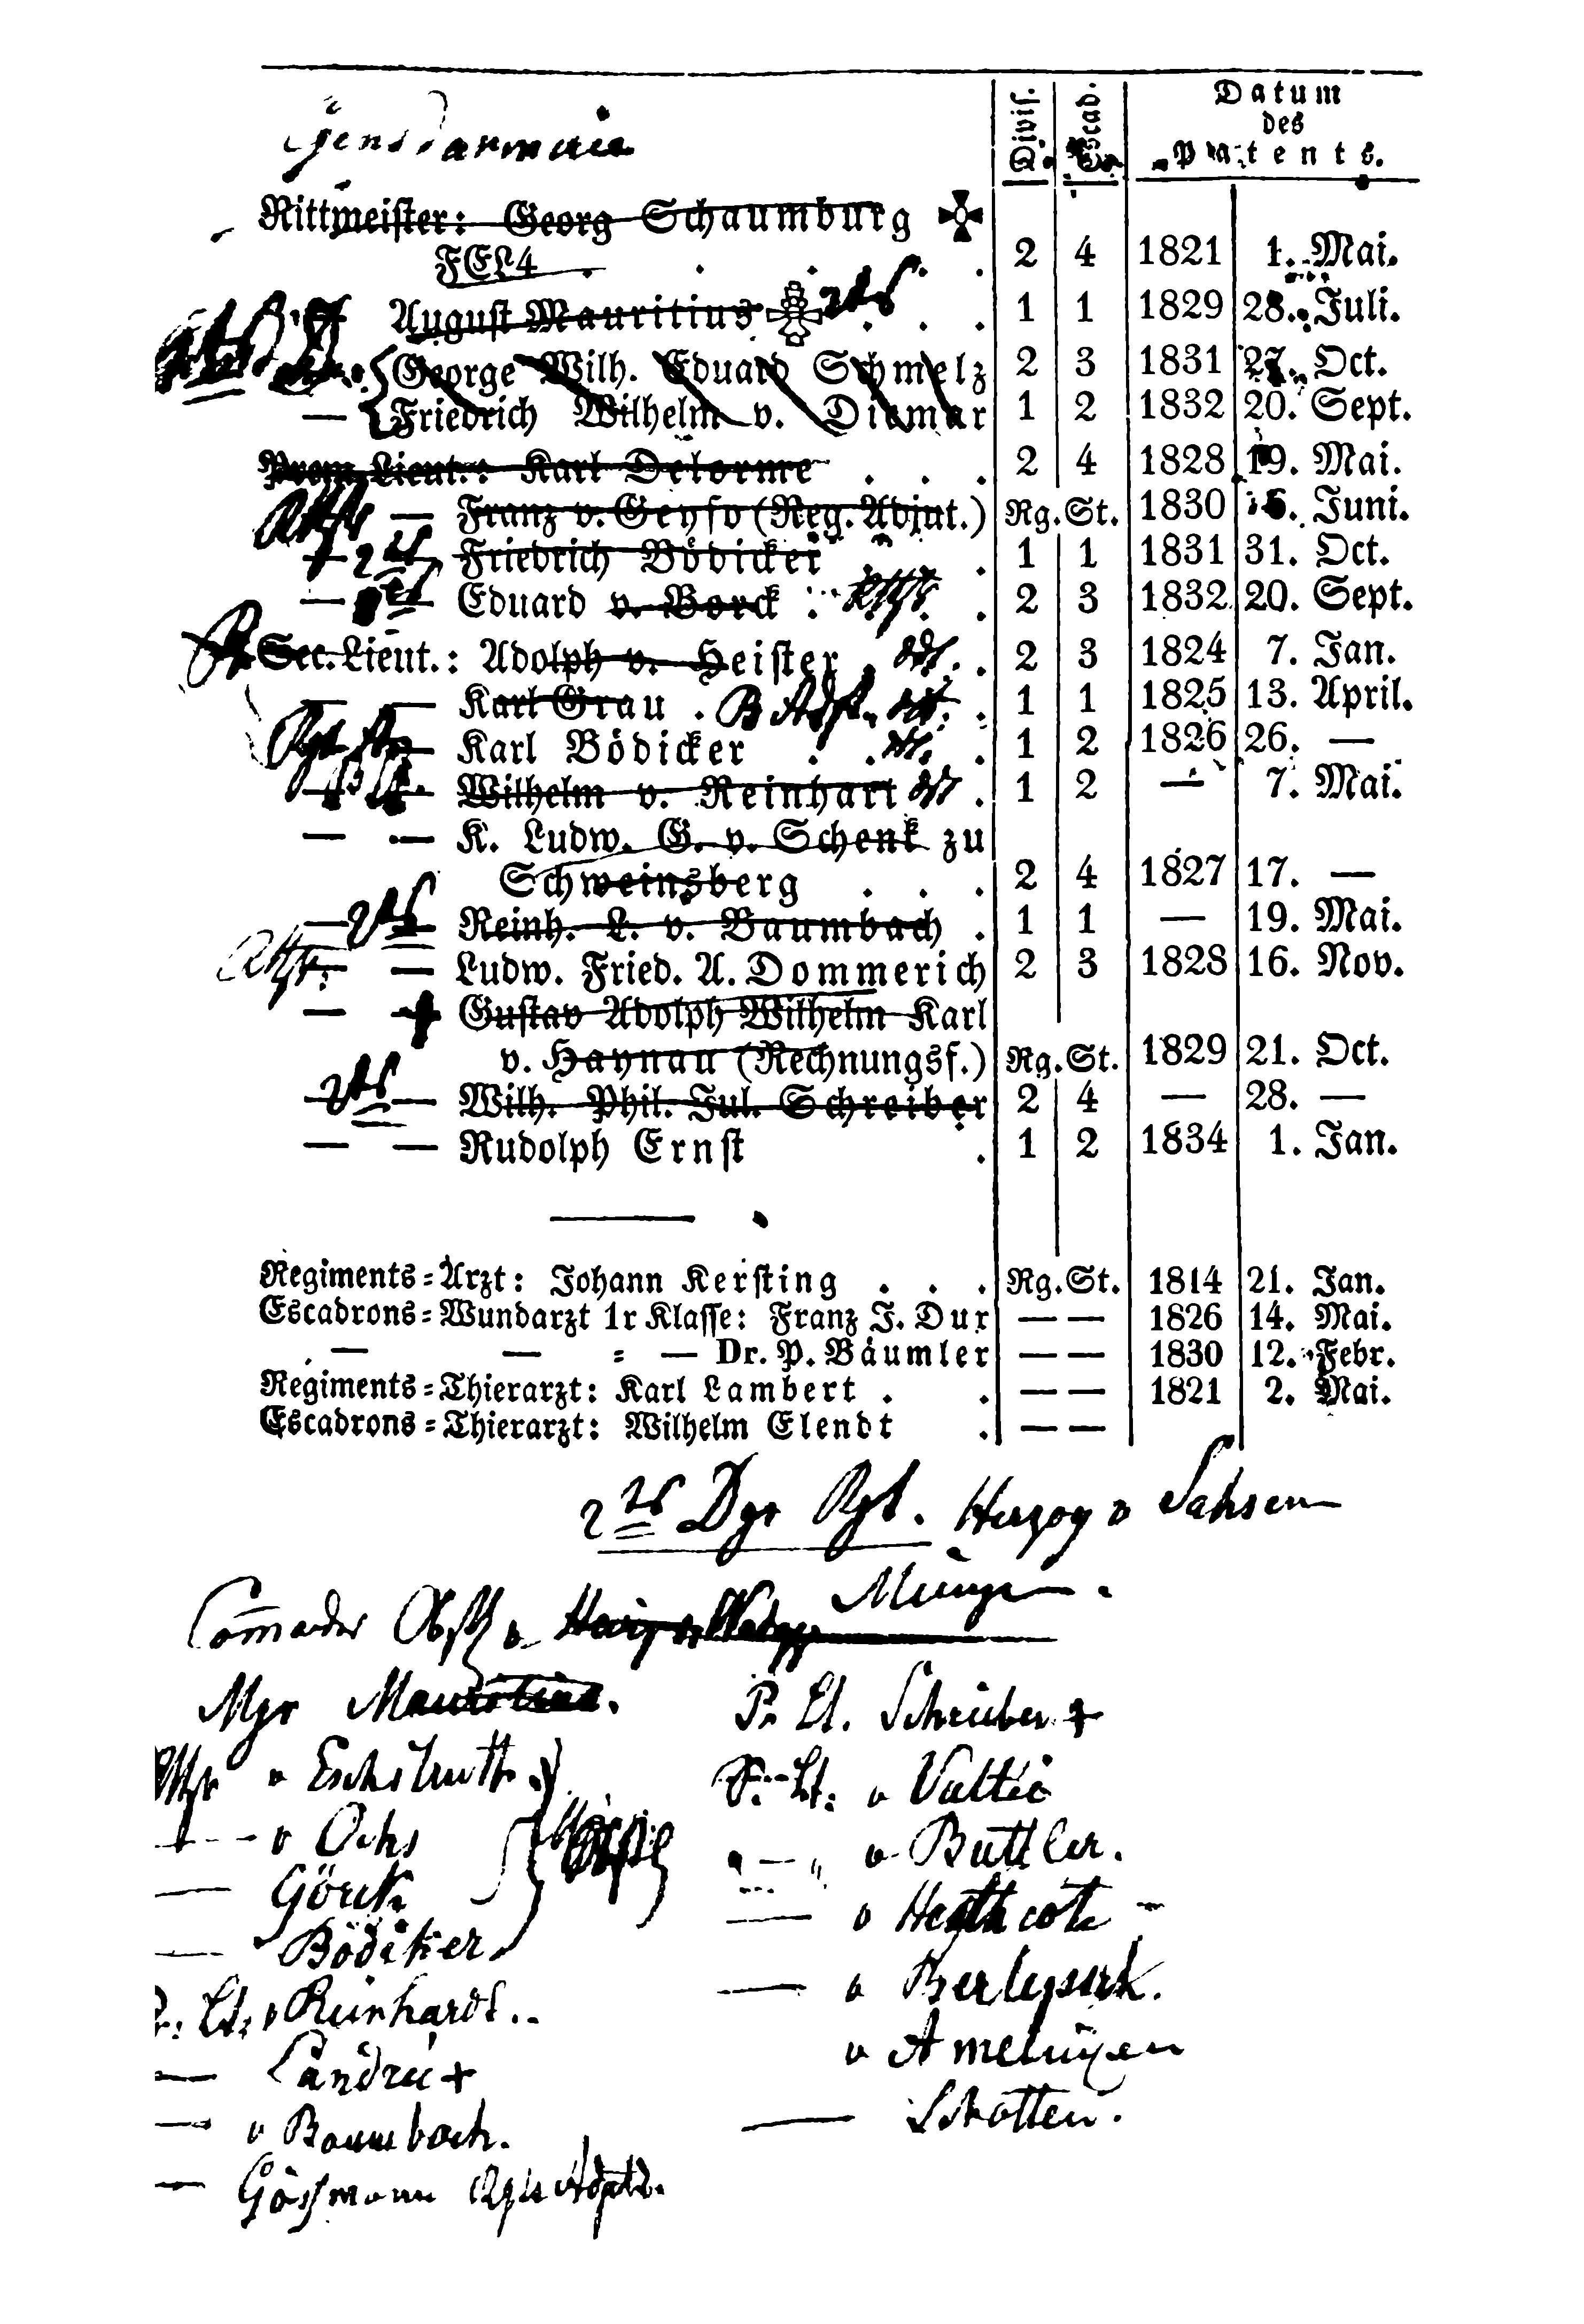 Gensdarmerie
Divis. Escad. Datum
des
Patents.
Rittmeister: Georg Schaumburg
FEL4 . . . . 2 4 1821 1. Mai.
August Mauritius 2ts . . . 1 1 1829 28. Juli.
George Wilh. Eduard Schmelz 2 3 1831 27. Oct.
— Friedrich Wilhelm v. Diemar 1 2 1832 20. Sept.
Prem. Lieut.: Karl Delorme . . . 2 4 1828 19. Mai.
— Franz v. Geyso (Reg. Adjut.) Rg. St. 1830 6. Juni.
— 2ts Friedrich Bödicker . . 1 1 1831 31. Oct.
— — Eduard v. Borck . . 2 3 1832 20. Sept.
Sec. Lieut.: Adolph v. Heister . . 2 3 1824 7. Jan.
— — Karl Grau . . 1 1 1825 13. April.
— Karl Bödicker . . . 1 2 1826 26. —
— — Wilhelm v. Reinhart . 1 2 — 7. Mai.
— — K. Ludw. G. v. Schenk zu
Schweinsberg . . . 2 4 1827 17. —
— 2ts Reinh. L. v. Baumbach . 1 1 — 19. Mai.
— — Ludw. Fried. A. Dommerich 2 3 1828 16. Nov.
— + Gustav Adolph Wilhelm Karl
v. Haynau (Rechnungsf.) Rg. St. 1829 21. Oct.
— 2ts — Wilh. Phil. Jul. Schreiber 2 4 — 28. —
— — Rudolph Ernst . 1 2 1834 1. Jan.
Regiments-Arzt: Johann Kersting . . . Rg. St. 1814 21. Jan.
Escadrons-Wundarzt 1r Klasse: Franz J. Dux — — 1826 14. Mai.
— — - — Dr. P. Bäumler — — 1830 12. Febr.
Regiments-Thierarzt: Karl Lambert . . — — 1821 2. Mai.
Escadrons-Thierarzt: Wilhelm Elendt . — —
2ts Dgr Rgt. Herzog v Sachsen
Commander Obst v.
Mgr Mauritius.
v Eschstruth
— v Ochs
— Görck
— Bödiker
Lt. v Reinhardt.
— Landré +
— v Baumbach.
— Gössmann
Pr Lt. Schreiber +
S. Lt. v Vultée
— " v Buttler.
— v Heathcote
— v Berlepsch.
v Amelunxen
— Schotten.